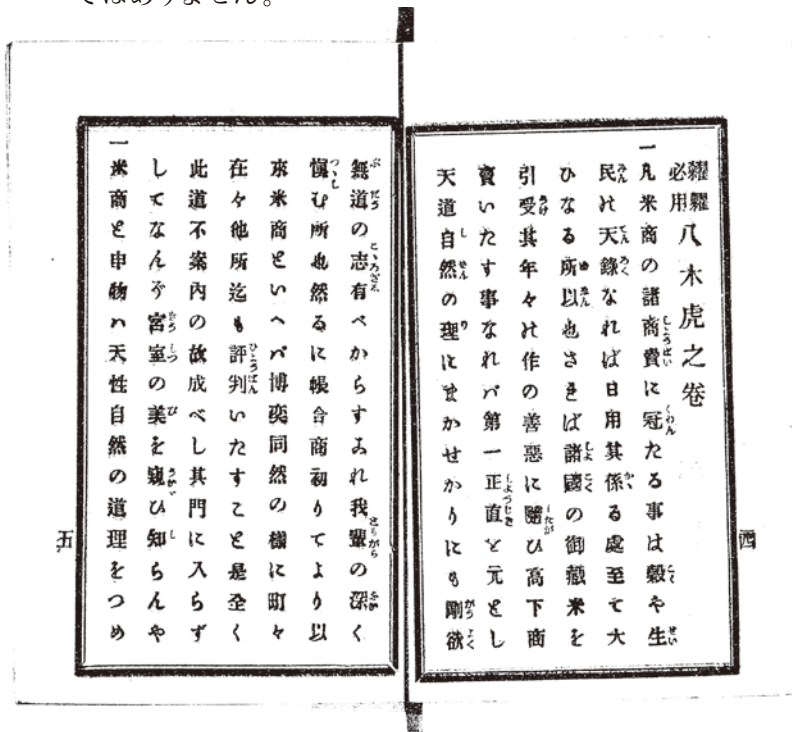 ではありません。
糶糴必用 八木虎之卷
一凡米商の諸商賣に冠たる事は穀や生
民の天祿なれば日用其係る處至て大
ひなる所以也されば諸國の御藏米を
引受其年々の作の善惡に隨ひ高下商
賣いたす事なれバ第一正直を元とし
天道自然の理にまかせかりにも剛欲
四
無道の志有べからすこれ我輩の深く
愼む所也然るに帳合商初りてより以
來米商といへバ博奕同然の樣に町々
在々他所迄も評判いたすこと是全く
此道不案内の故成べし其門に入らず
してなんぞ宮室の美を窺ひ知らんや
一米商と申物ハ天性自然の道理をつめ
五